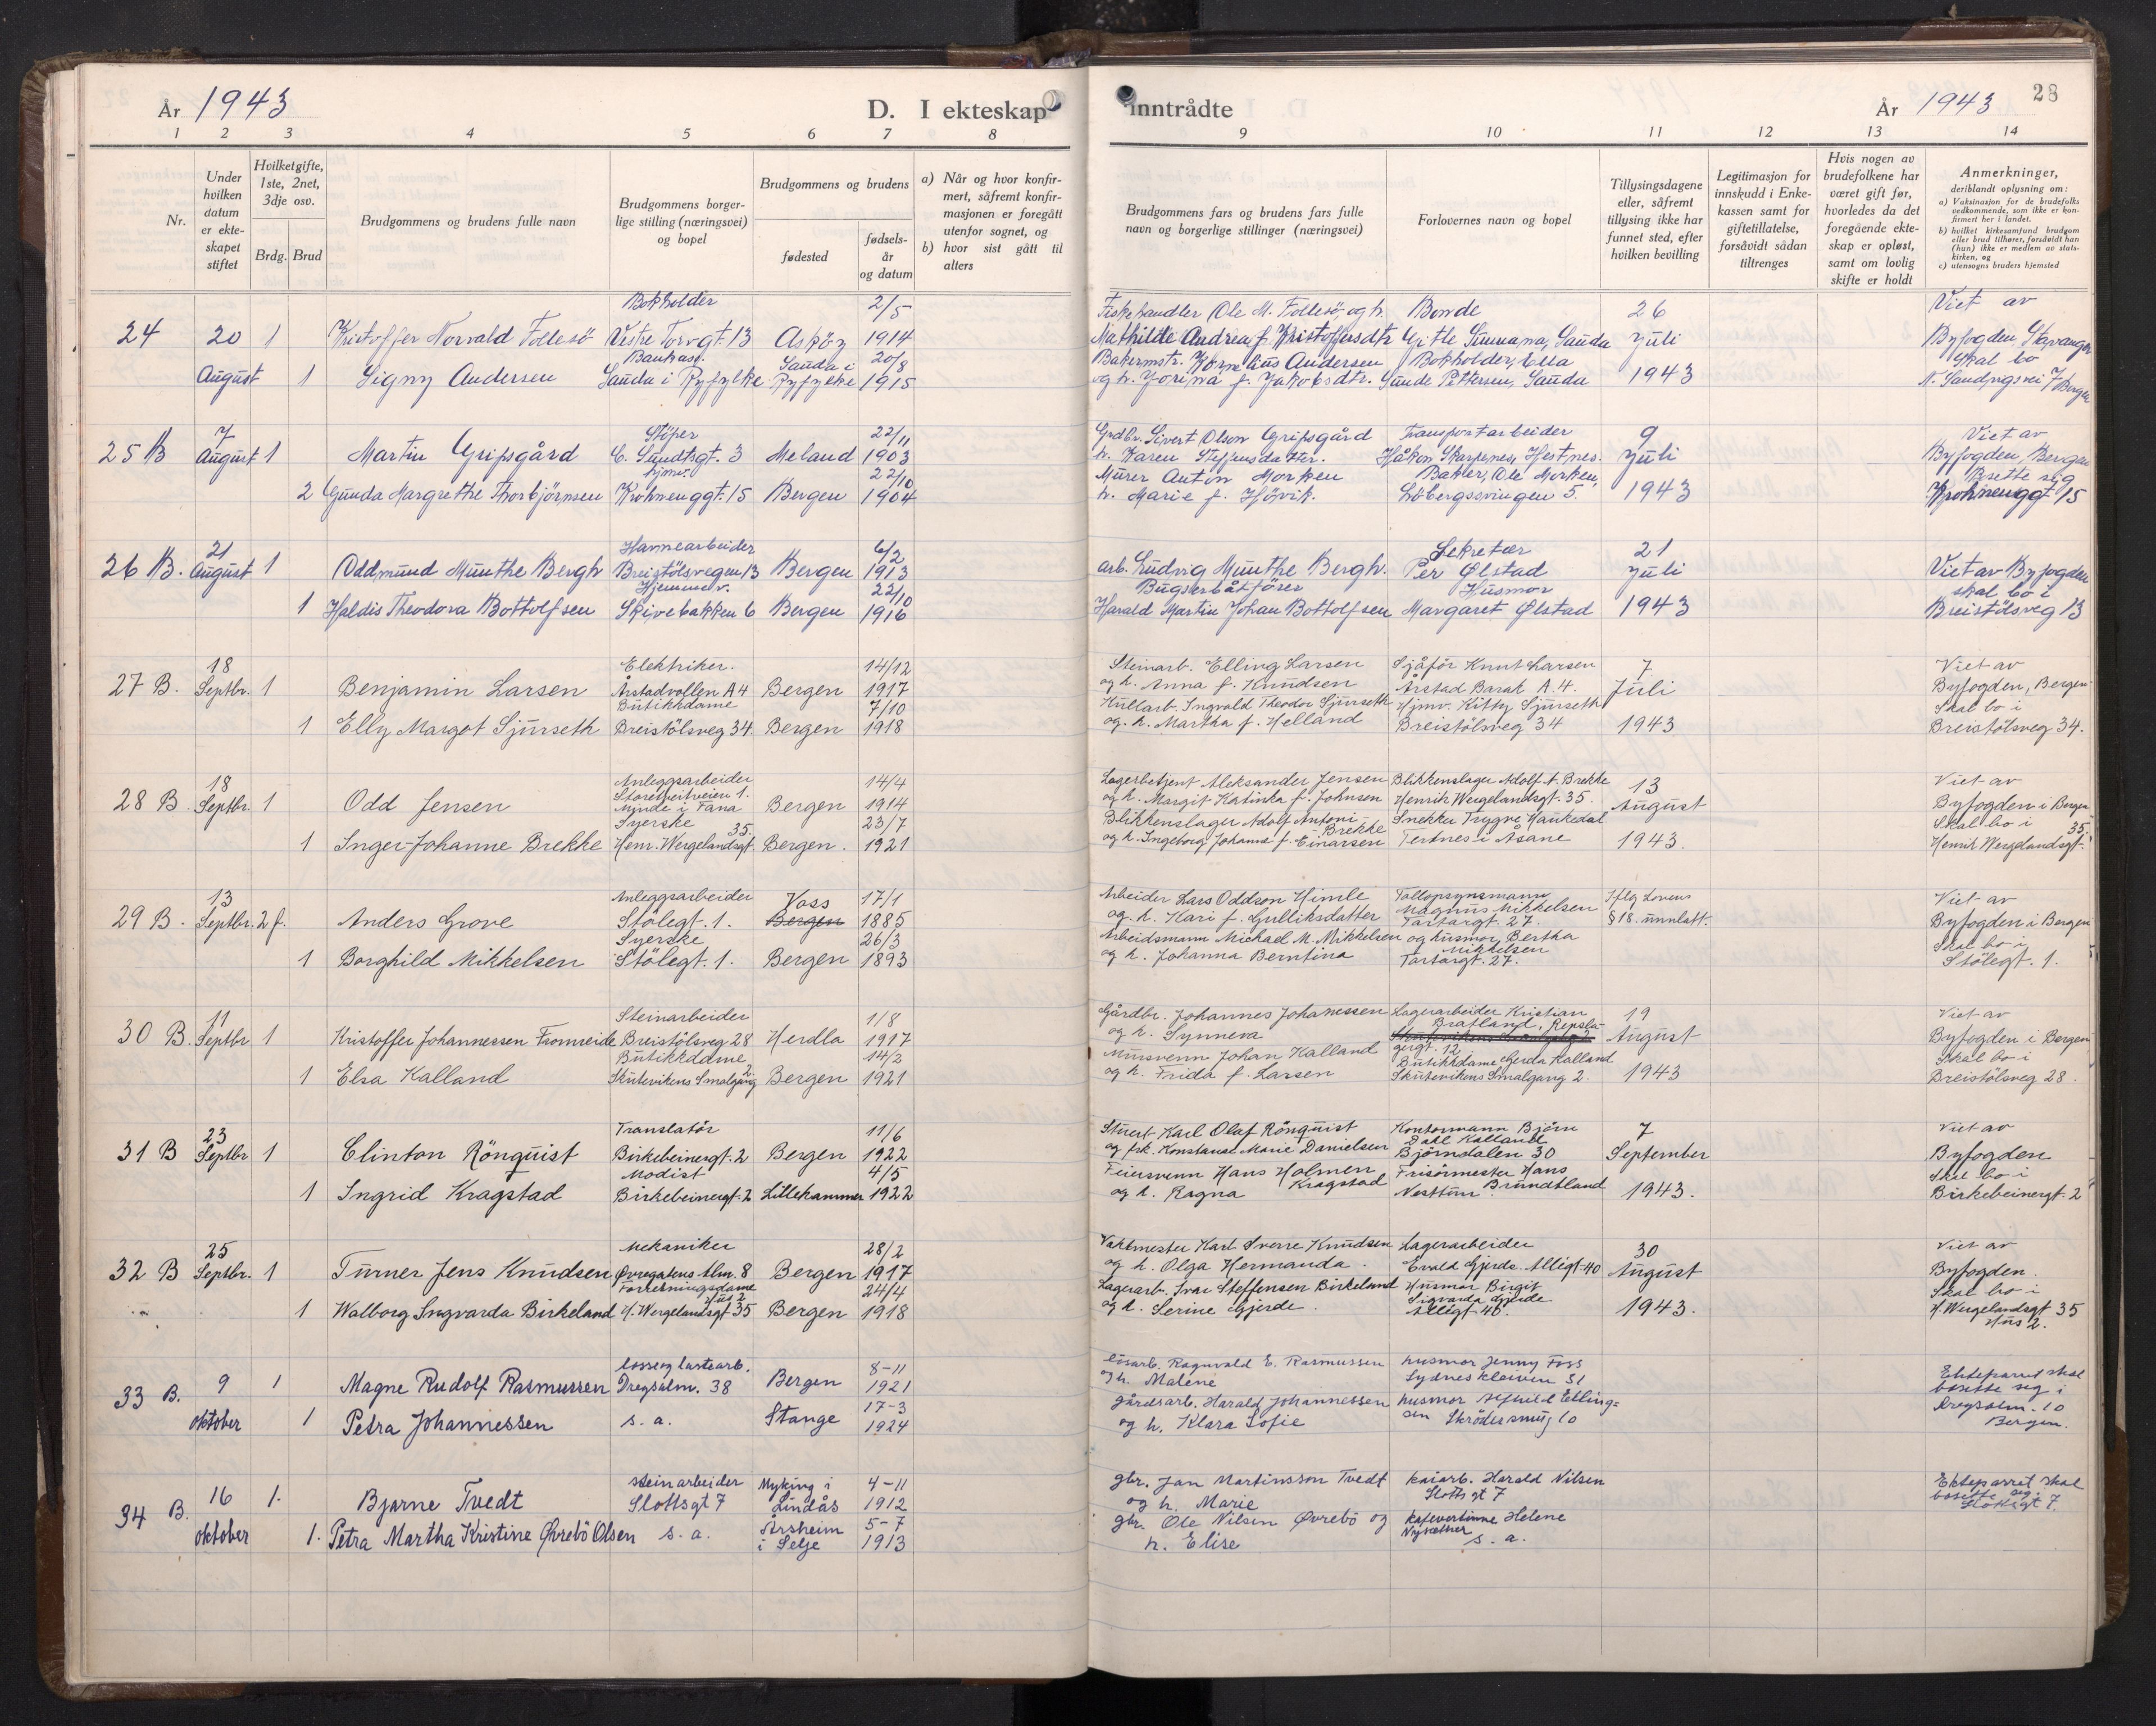 År 1943
D. I ekteskap inntrådte
År 1943 28
1 2 3 4 5 6 7 8 9 10 11 12 13 14
Nr.
Under hvilken datum er ekteskapet stiftet
Hvilketgifte, 1ste, 2net, 3dje osv.
Brdg. Brud
Brudgommens og brudens fulle navn
Brudgommens borgerlige stilling (næringsvei) og bopel
Brudgommens og brudens
fødested
fødselsår og datum
a) Når og hvor konfirmert, såfremt konfirmasjonen er foregått utenfor sognet, og
b) hvor sist gått til alters
Brudgommens fars og brudens fars fulle navn og borgerlige stillinger (næringsvei)
Forlovernes navn og bopel
Tillysingsdagene eller, såfremt tillysing ikke har funnet sted, efter hvilken bevilling
Legitimasjon for innskudd i Enkekassen samt for giftetillatelse, forsåvidt sådan tiltrenges
Hvis nogen av brudefolkene har været gift før, hvorledes da det foregående ekteskap er opløst, samt om lovlig skifte er holdt
Anmerkninger,
deriblandt oplysning om:
a) Vaksinasjon for de brudefolks vedkommende, som ikke er konfirmert her i landet.
b) hvilket kirkesamfund brudgom eller brud tilhører, forsåvidt han (hun) ikke er medlem av statskirken, og
c) utensogns bruders hjemsted
Bokholder 2/5 Fiskehandler Ole M. Follesö, og h. Bonde 26 Viet av
24 20 1 Kristoffer Norvald Follesö Vestre Torvgt 13 Asköy 1914 Mathilde Andrea f. Kristoffersdtr Gitle Sunnana, Sauda Juli Byfogden, Stavanger
Sauda i 20/8 Bakermstr. Kornelius Andersen Bokholder, Ella Skal bo
August 1 Signy Andersen Sauda i Ryfylke Ryfylke 1915 og h. Jorina f. Jakobsdtr. Sunde Pettersen, Sauda 1943 Bergen
7 Stöper 22/11 Grdbr. Sivert Olson Gripsgård Transportarbeider 9 Viet av
25 B August 1 Martin Gripsgård C. Sundtsgt. 3 Meland 1903 h. Karen Steffensdatter. Håkon Skarpenes, Hestnes. Juli Byfogden, Bergen
hjmv. 22/10 Murer Anton Morken Baker, Ole Morken, Bosette sig
2 Gunda Margrethe Thorbjörnsen Krohnenggt. 15 Bergen 1904 h. Marie f. Hövik. Löbergssvingen 5. 1943 Krohnenggt 15
21 Havnearbeider 6/2 Sekretær 21
26 B. August 1 Oddmund Munthe Bergh Breistölsvegen 13 Bergen 1913 arb. Ludvig Munthe Bergh. Per Ølstad Juli Viet av Byfogden
Hjemmev. 22/10 Bugserbåtförer Husmor skal bo i
1 Haldis Theodora Bottolfsen Skivebakken 6 Bergen 1916 Harald Martin Johan Bottolfsen Margaret Ølstad 1943 Breistölsveg 13
18 Elektriker. 14/12 Steinarb. Elling Larsen Sjåför Knut Larsen 7 Viet av
27 B. Septbr. 1 Benjamin Larsen Årstadvollen A4 Bergen 1917 og h. Anna f. Knudsen Årstad Barak A.4. Juli Byfogden, Bergen
Butikkdame 7/10 Kullarb. Ingvald Theodor Sjurseth Hjmv. Kitty Sjurseth Skal bo i
1 Elly Margot Sjurseth Breistölsveg 34. Bergen 1918 og. h. Martha f. Helland Breistölsveg 34 1943 Breistölsveg 34.
18 Anleggsarbeider 14/4 Lagerbetjent Aleksander Jensen Blikkenslager Adolf A. Brekke 13 Viet av
28 B Septbr. 1 Odd Jensen Storetveitveien 1. i Fana Bergen 1914 og h. Margit Katinka f. Johnsen Henrik Wergelandsgt. 35. August Byfogden i Bergen
Syerske 35. 23/7 Blikkenslager Adolf Antoni Brekke Snekker Trygve Haukedal Skal bo i 35.
1 Inger-Johanne Brekke Henr. Wergelandsgt. Bergen. 1921 og h. Ingeborg Johanne f. Einarsen Tertnes i Åsane 1943. Henrik Wergelandsgt.
13 Anleggsarbeider Voss 17/1 Arbeider Lars Oddson Himle Tollopsynsmann Iflg Lovens Viet av
29 B. Septbr. 2 f. Anders Grove Stölegt. 1. Bergen 1885 og. h. Kari f. Gulliksdatter Magnus Mikkelsen Tartargt. 27. § 18. unnlatt. Byfogden i Bergen
Syerske 26/3 Arbeidsmann Michael M. Mikkelsen og husmor Bertha Skal bo i
1 Borghild Mikkelsen Stölegt. 1. Bergen 1893 og h. Johanna Berntina Mikkelsen Tartargt. 27. Stölegt. 1.
11 Steinarbeider 1/8 Gårdbr. Johannes Johannessen Lagerarbeider Kristian 19 Viet av
30 B. Septbr 1 Kristoffer Johannessen Fromreide Breistölsveg 28 Herdla 1917 og h. Synneva Bratland, Repslagergt. 12 August Byfogden i Bergen
Butikkdame 14/3 Mursvenn Johan Kalland Butikkdame Gerda Kalland Skal bo i
1 Elsa Kalland Skutevikens Smalgang 2 Bergen 1921 og h. Frida f. Larsen Skutevikens Smalgang 2. 1943 Breistölsveg 28.
23 Translatör 11/6 Stuert Karl Olaf Rönquist Kontormann Björn 7 Viet av
31 B Septbr 1 Clinton Rönquist Birkebeinergt. 2 Bergen 1922 og frk. Konstanse Marie Danielsen Dahl Kalland Björndalen 30 September Byfogden
Modist 4/5 Feiersvenn Hans Holmen Kragstad Frisörmester Hans Skal bo i
1 Ingrid Kragstad Birkebeinergt. 2 Lillehammer 1922 og h. Ragna Nesttun Brundtland 1943. Birkebeinergt. 2
25 Mekaniker 28/2 Vaktmester Karl Sverre Knudsen Lagerarbeider 30 Viet av
32 B Septbr. 1 Turner Jens Knudsen Øvregatens Alm. 8 Bergen 1917 og h. Olga Hermanda. Evald Gjerde. Alligt. 40 August Byfogden.
Forkekningsdame Hus 2 24/4 Lagerarb. Ivar Steffensen Birkeland Husmor Birgit Skal bo i
1 Walborg Ingvarda Birkeland H. Wergelandsgt 35 Bergen 1918 og h. Serine Gjerde. Sigvarda Gjerde Alligt. 40. 1943. H. Wergelandsgt 35 Hus 2.
losse og lastearb. 8-11 lösarb. Ragnvald E. Rasmussen husmor Jenny Foss Ekteparet skal
33 B. 9 1 Magne Rudolf Rasmussen Dregsalm. 38 Bergen 1921 og h. Malene Sydneskleiven 31 bosette seg i
17-3 gårdsarb. Harald Johannessen husmor Alfhild Elling= Dregsalm. 10
oktober 1 Petra Johannessen s. a. Stange 1924 og h. Klara Sofie sen Skrödersmug 10 Bergen.
steinarbeider Myking i 4-11 gbr. Jan Martinsson Tvedt kaiarb. Harald Nilsen Ekteparret skal
34 B. 16 1. Bjarne Tvedt Slottsgt 7 Lindås 1912 og h. Marie Slottsgt 7 bosette seg Slottsgt 7.
Årsheim 5-7 gbr. Ole Nilsen Øvrebö og kafevertinne Helene
oktober 1. Petra Martha Kristine Øvrebö Olsen s. a. i Selje 1913 h. Elise Nysæther s. a.